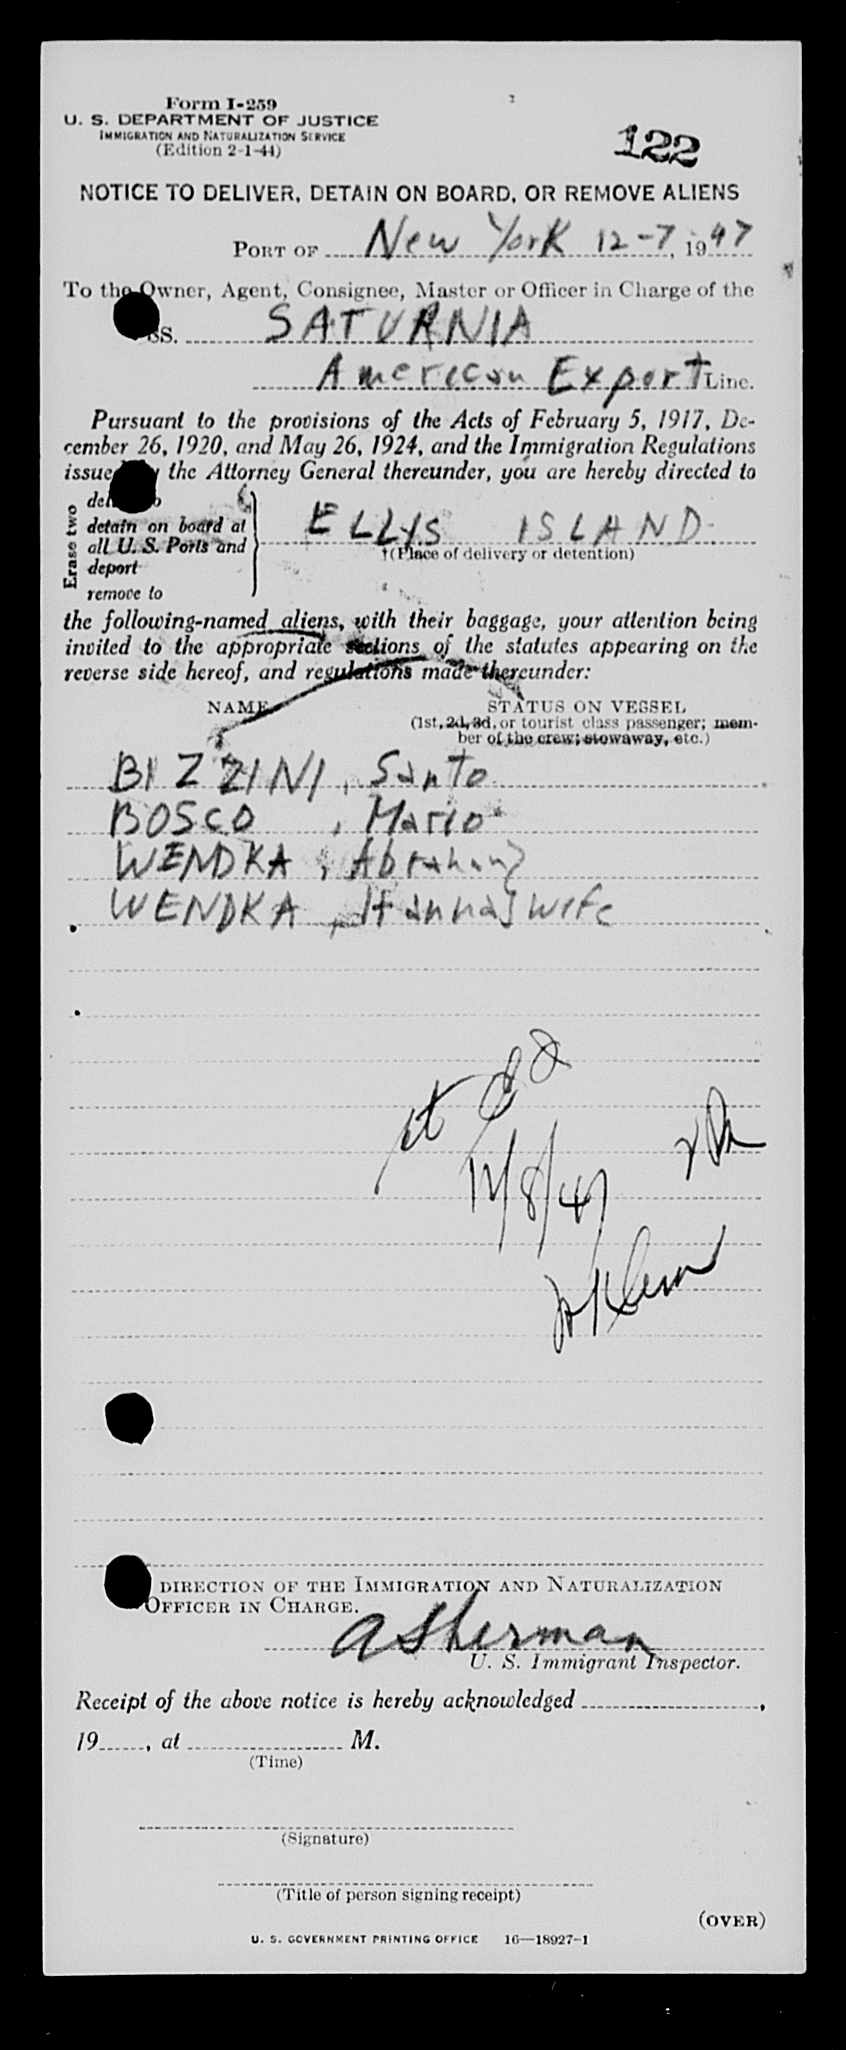 Form I-259
U. S. DEPARTMENT OF JUSTICE
IMMIGRATION AND NATURALIZATION SERVICE
(Edition 2-1-44)
122
NOTICE TO DELIVER, DETAIN ON BOARD, OR REMOVE ALIENS
PORT OF New York 12-7, 1947
To the Owner, Agent, Consignee, Master or Officer in Charge of the
SS. SATURNIA
American Export Line.
Pursuant to the provisions of the Acts of February 5, 1917, De-
cember 26, 1920, and May 26, 1924, and the Immigration Regulations
issued by the Attorney General thereunder, you are hereby directed to
Erase two
detain on board at
all U. S. Ports and
deport
remove to
ELLYS ISLAND
†(Place of delivery or detention)
the following-named aliens, with their baggage, your attention being
invited to the appropriate sections of the statutes appearing on the
reverse side hereof, and regulations made thereunder:
NAME STATUS ON VESSEL
(1st, 2d, 3d, or tourist class passenger; mem-
ber of the crew; stowaway, etc.)
BIZZINI, Santo
BOSCO, Mario
WENDKA, Abraham
WENDKA, Hanna wife
12/8/47
DIRECTION OF THE IMMIGRATION AND NATURALIZATION
OFFICER IN CHARGE.
A Sherman
U. S. Immigrant Inspector.
Receipt of the above notice is hereby acknowledged ,
19 , at M.
(Time)
(Signature)
(Title of person signing receipt)
(OVER)
U. S. GOVERNMENT PRINTING OFFICE 16—18927-1